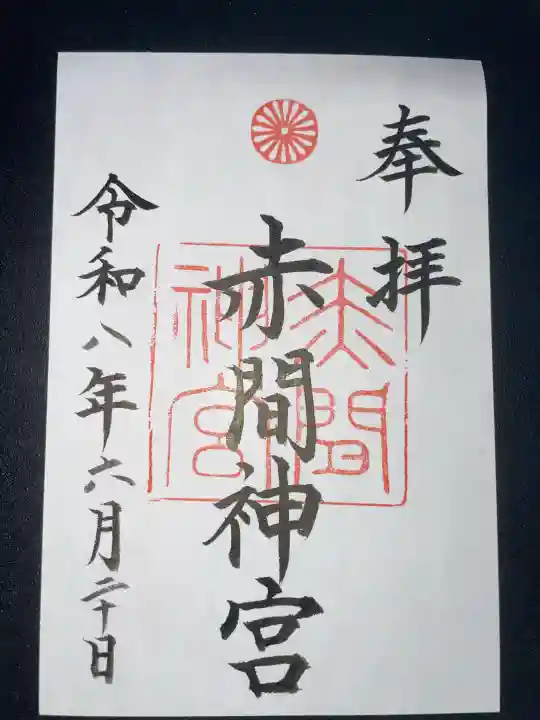 奉拝
赤間神宮
赤間神宮
令和八年六月二十日